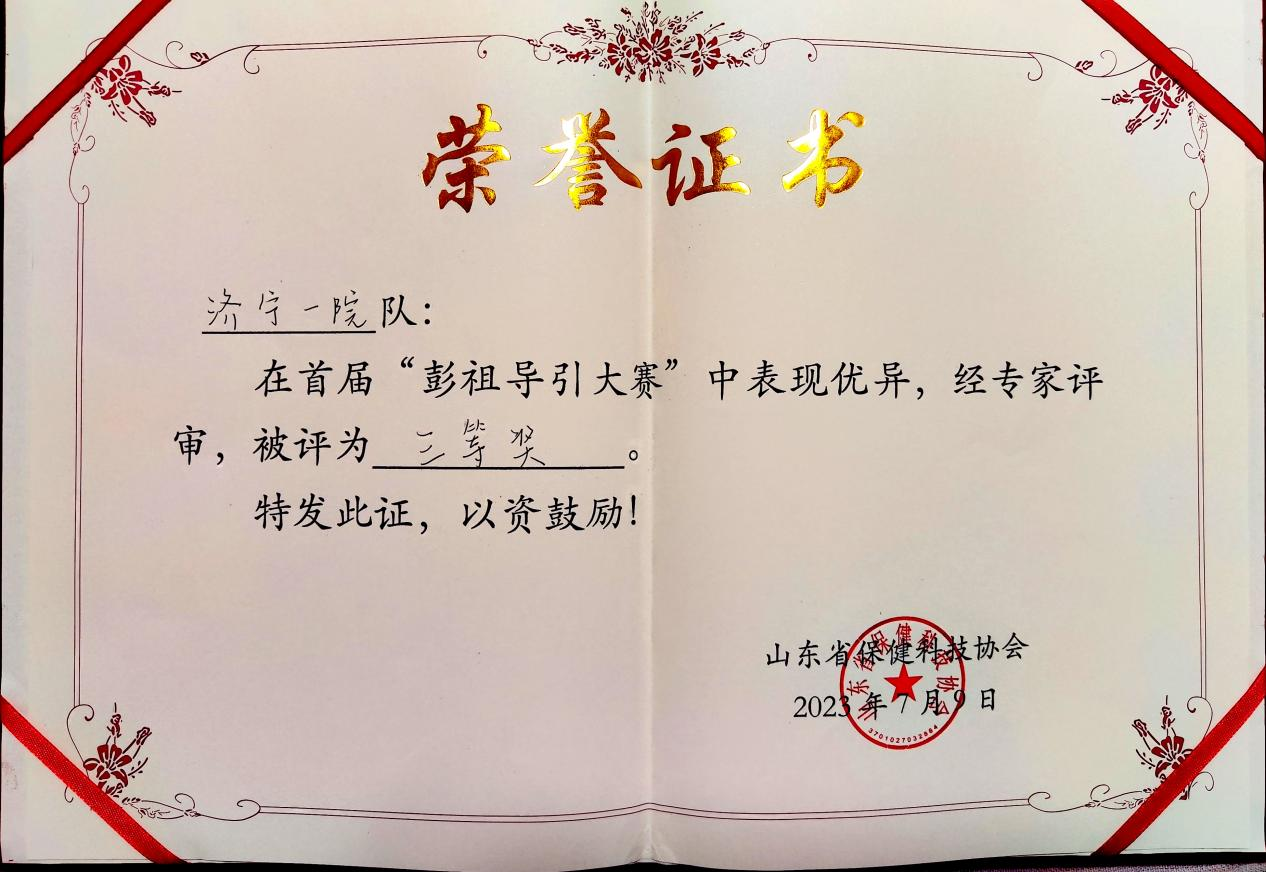 荣誉证书
济宁一院队：
在首届“彭祖导引大赛”中表现优异，经专家评
审，被评为三等奖。
特发此证，以资鼓励！
山东省保健科技协会
2023年7月9日
山东省保健科技协会
3701027032884